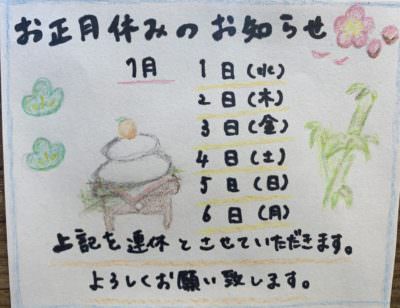 お正月休みのお知らせ
1月 1日(水)
2日(木)
3日(金)
4日(土)
5日(日)
6日(月)
上記を連休とさせていただきます。
よろしくお願い致します。